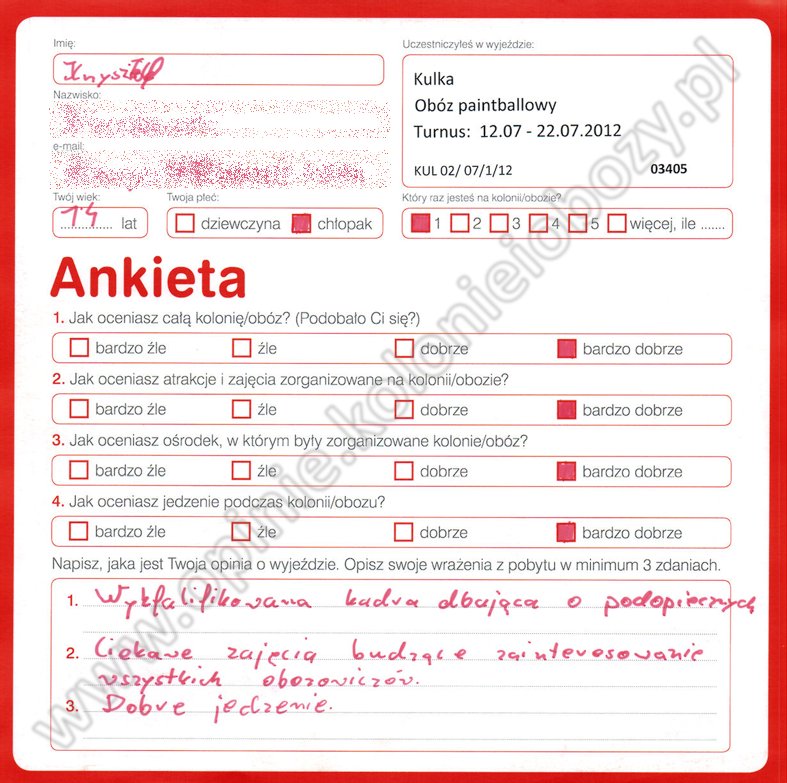 Imię:
Uczestniczyłeś w wyjeździe:
Krzysztof
Kulka
Obóz paintballowy
Turnus: 12.07 - 22.07.2012
KUL 02/ 07/1/12 03405
Nazwisko:
e-mail:
Twój wiek:
14 lat
Twoja płeć:
dziewczyna chłopak
Który raz jesteś na kolonii/obozie?
1 2 3 4 5 więcej, ile .......
Ankieta
1. Jak oceniasz całą kolonię/obóz? (Podobało Ci się?)
bardzo źle źle dobrze bardzo dobrze
2. Jak oceniasz atrakcje i zajęcia zorganizowane na kolonii/obozie?
bardzo źle źle dobrze bardzo dobrze
3. Jak oceniasz ośrodek, w którym były zorganizowane kolonie/obóz?
bardzo źle źle dobrze bardzo dobrze
4. Jak oceniasz jedzenie podczas kolonii/obozu?
bardzo źle źle dobrze bardzo dobrze
Napisz, jaka jest Twoja opinia o wyjeździe. Opisz swoje wrażenia z pobytu w minimum 3 zdaniach.
1. Wykfalifikowana kadra dbająca o podopiecznych
2. Ciekawe zajęcia budzące zainteresowanie
wszystkich obozowiczów.
3. Dobre jedzenie.
www.opinie.kolonieiobozy.pl